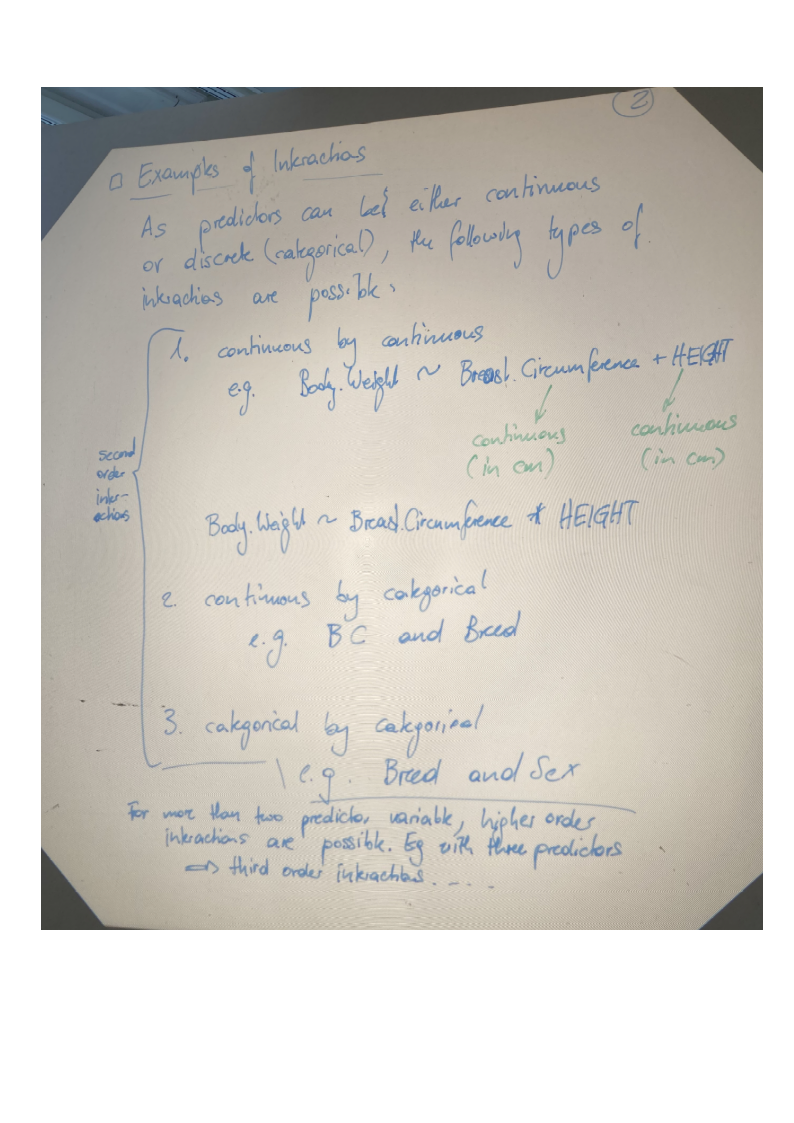 2
□ Examples of Interactions
As predictors can be either continuous
or discrete (categorical), the following types of
interactions are possible:
1. continuous by continuous
e.g. Body.Weight ~ Breast.Circumference + HEIGHT
continuous continuous
(in cm) (in cm)
second
order
inter-
actions
Body.Weight ~ Breast.Circumference * HEIGHT
2. continuous by categorical
e.g. BC and Breed
3. categorical by categorical
e.g. Breed and Sex
For more than two predictor variable, higher order
interactions are possible. Eg with three predictors
⇒ third order interactions....